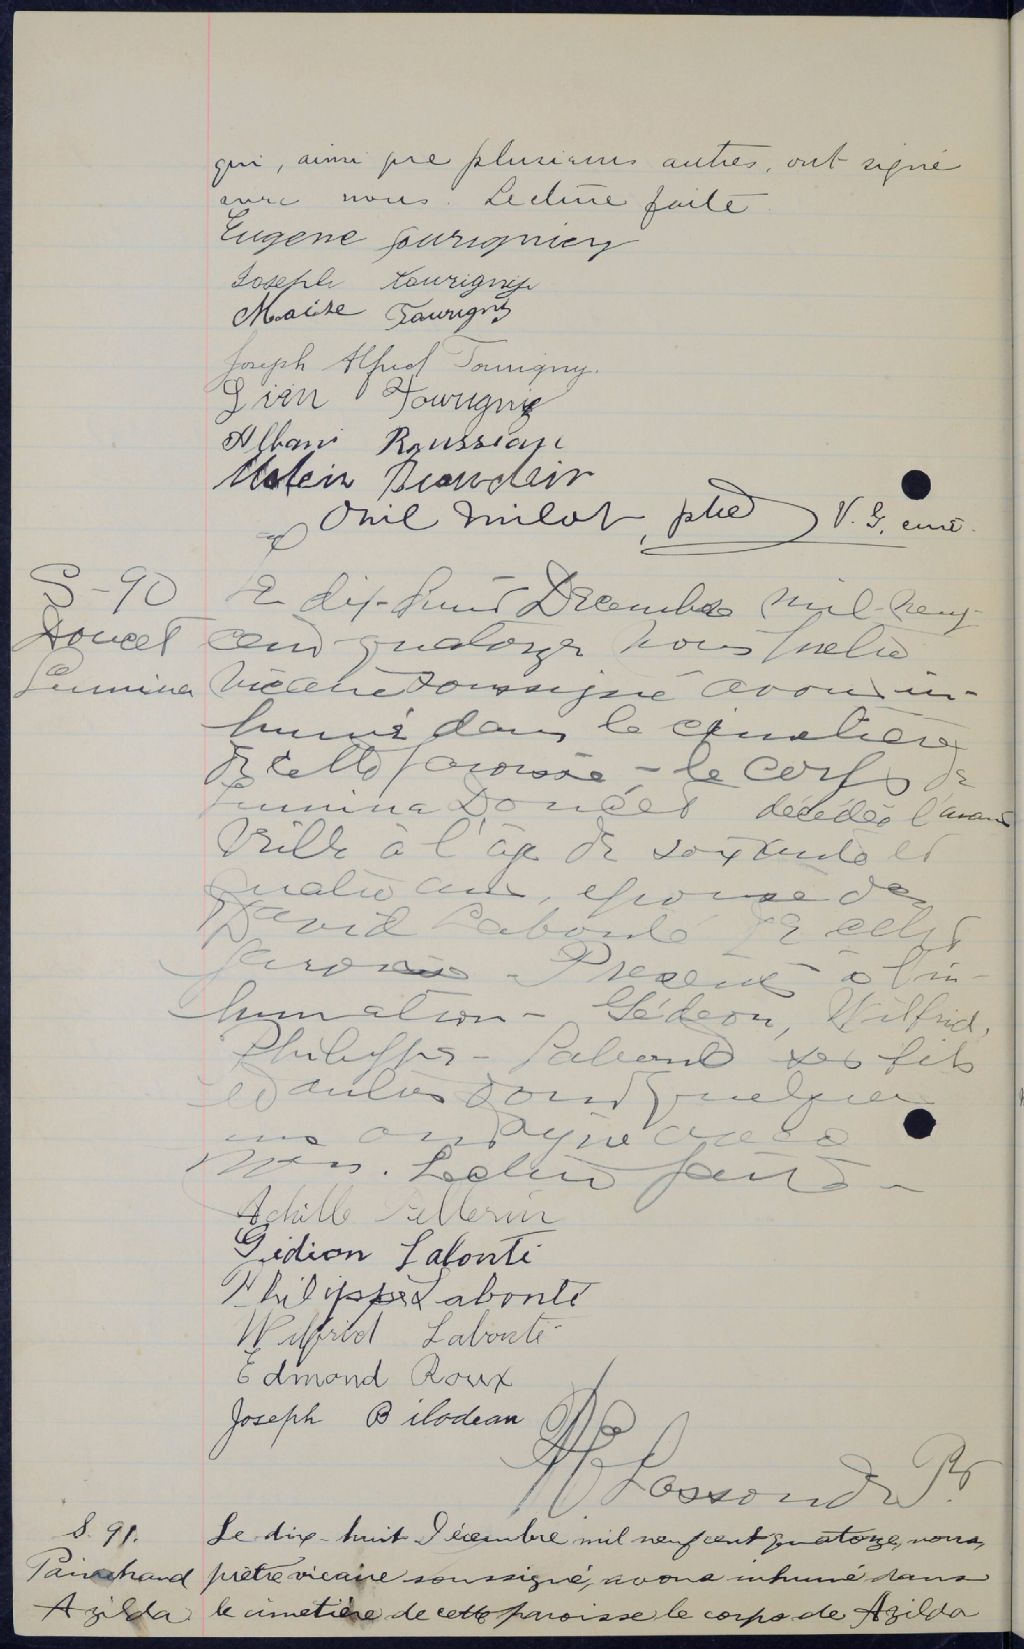 qui, ainsi que plusieurs autres, ont signé
avec nous. Lecture faite.
Eugene Tourigniey
Joseph Tourigny
Moïse Tourigny
Joseph Alfred Tourigny.
Tourigny
Albani Roussian
Beaudoin
Onil Milot, ptre V. G, curé.
S-90
Doucet
Lumina
Le dix-huit Decembre mil-neuf-
cent-quatorze nous prêtre
vicaire soussigné avons in-
humé dans le cimetière
de cette paroisse - le corps de
Lumina Doucet décédée l'avant
veille à l'âge de soixante et
quatre ans, épouse de
David Labonté de cette
paroisse - Présents à l'in-
humation - Gédéon, Wilfrid,
Philippe - Labonté ses fils
et autres dont quelques
uns ont signé avec
nous. Lecture faite -
Achille Pellerin
Gidion Labonti
Philippe Labonté
Wilfrid Labonté
Edmond Roux
Joseph Bilodeau
Lassonde Ptr
S. 91.
Painchaud
Azilda
Le dix-huit Décembre mil neuf cent quatorze, nous,
prêtre vicaire soussigné, avons inhumé dans
le cimetière de cette paroisse le corps de Azilda